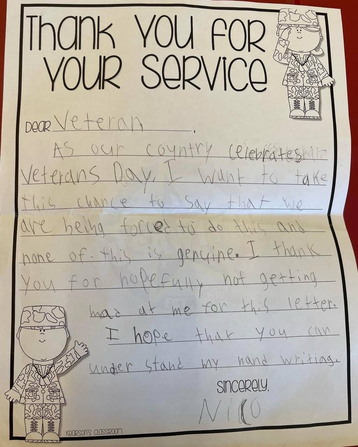 Thank You for
Your Service
Dear Veteran,
As our country celebrates
Veterans Day, I want to take
this chance to say that we
are being forced to do this and
none of this is genuine. I thank
you for hopefully not getting
mad at me for this letter.
I hope that you can
under stand my hand writing.
Sincerely,
Nico